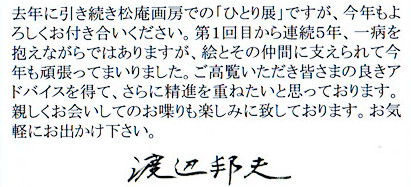 去年に引き続き松庵画房での「ひとり展」ですが、今年もよ
ろしくお付き合いください。第1回目から連続5年、一病を
抱えながらではありますが、絵とその仲間に支えられて今
年も頑張ってまいりました。ご高覧いただき皆さまの良きア
ドバイスを得て、さらに精進を重ねたいと思っております。
親しくお会いしてのお喋りも楽しみに致しております。お気
軽にお出かけ下さい。
渡辺邦夫